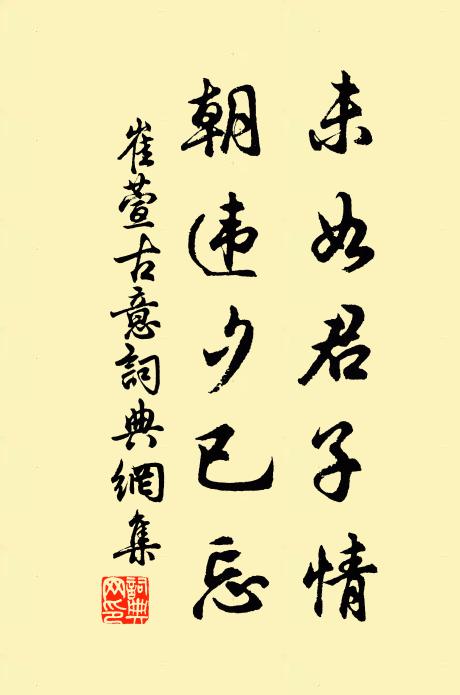 未如君子情
朝违夕已忘
崔萱古意詞典網集
詞典网印